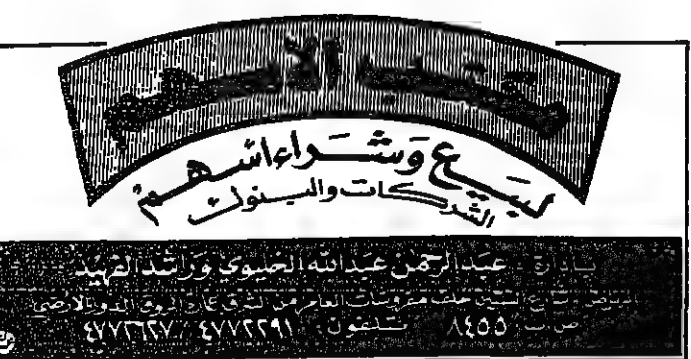 مكتب الأسهم
لبيع وشراء اسهم
الشركات والبنوك
بادارة : عبد الرحمن عبد الله الخليوي وراشد الفهيد
الرياض شارع الستين خلف مفروشات العامر من الشرق عمارة الدور الارضي
ص ب ٨٤٥٥ تلفون : ٤٧٧٢٢٩١ / ٤٧٧٢٦٢٧